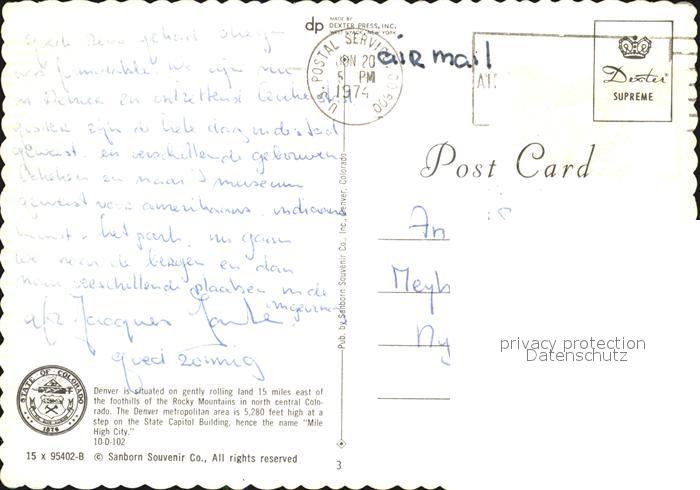 MADE BY
dp DEXTER PRESS, INC.
WEST NYACK, NEW YORK
U.S. POSTAL SERVICE
JUN 20
5 PM
1974
air mail
Dexter
SUPREME
Post Card
we zijn nu
in Denver en ontzettend
gister zijn we hele dag in de stad
geweest en verschillende gebouwen
bekeken en naar 't museum
geweest voor amerikaans indiaanse
kunst - het park. nu gaan
we naar de bergen en dan
naar verschillende plaatsen in de
omgeving
Jacques
goed zonnig
An
Meyh
Ny
privacy protection
Datenschutz
Pub. by Sanborn Souvenir Co., Inc., Denver, Colorado
STATE OF COLORADO
1876
Denver is situated on gently rolling land 15 miles east of
the foothills of the Rocky Mountains in north central Colo-
rado. The Denver metropolitan area is 5,280 feet high at a
step on the State Capitol Building, hence the name "Mile
High City."
10-D-102
15 x 95402-B © Sanborn Souvenir Co., All rights reserved
3